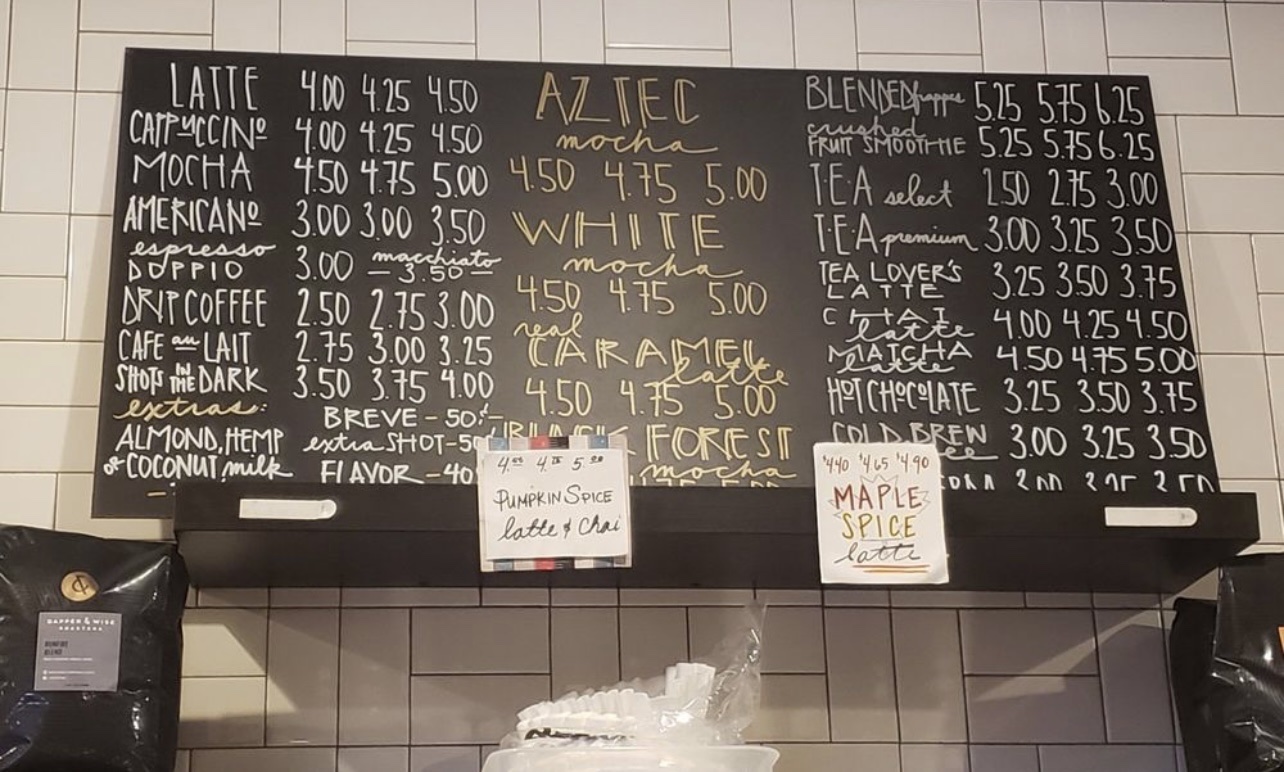 LATTE 4.00 4.25 4.50
CAPPUCCINO 4.00 4.25 4.50
MOCHA 4.50 4.75 5.00
AMERICANO 3.00 3.00 3.50
espresso
DOPPIO 3.00 macchiato
— 3.50 —
DRIP COFFEE 2.50 2.75 3.00
CAFE au LAIT 2.75 3.00 3.25
SHOTS IN THE DARK 3.50 3.75 4.00
extras:
BREVE - 50¢
ALMOND, HEMP extra SHOT - 50
or COCONUT milk FLAVOR - 40
AZTEC
mocha
4.50 4.75 5.00
WHITE
mocha
4.50 4.75 5.00
real
CARAMEL
latte
4.50 4.75 5.00
BLACK FOREST
mocha
BLENDED frappes 5.25 5.75 6.25
crushed
FRUIT SMOOTHIE 5.25 5.75 6.25
TEA select 2.50 2.75 3.00
TEA premium 3.00 3.25 3.50
TEA LOVER'S
LATTE 3.25 3.50 3.75
CHAI
latte 4.00 4.25 4.50
MATCHA
latte 4.50 4.75 5.00
HOT CHOCOLATE 3.25 3.50 3.75
COLD BREW 3.00 3.25 3.50
PUMPKIN SPICE
latte & chai
$4.40 $4.65 $4.90
MAPLE
SPICE
latte
DAPPER & WISE
ROASTERS
BONFIRE
BLEND